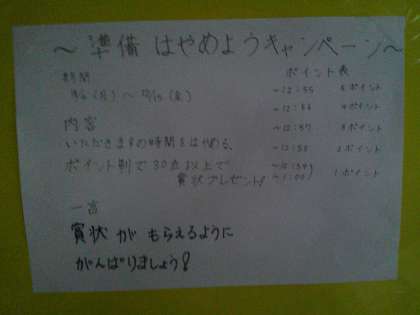 ～準備はやめようキャンペーン～
期間
(月)～ (金)
内容
いただきますの時間をはやめる。
ポイント制で30点以上で
賞状プレゼント!
ポイント表
～12:55 5ポイント
～12:56 4ポイント
～12:57 3ポイント
～12:58 2ポイント
～12:59
～1:00 1ポイント
一言
賞状がもらえるように
がんばりましょう!